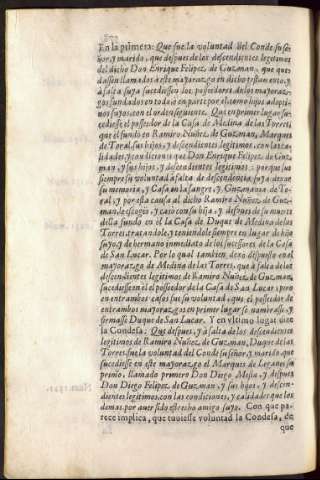 En la primera: Que fue la voluntad del Conde su señor,
y marido, que despues de los descendientes legitimos
del dicho Don Enrique Felipez de Guzman, que quedassen
llamados à este mayorazgo en dicho testamento, y
à falta suya sucediessen los posseedores de los mayorazgos
fundados en todo ò en parte por el como hijos adoptiuos
suyos, con el orden siguiente. Que en primer lugar sucediesse
el posseedor de la Casa de Medina de las Torres,
que èl fundò en Ramiro Nuñez de Guzman, Marques
de Toral, sus hijos, y descendientes legitimos, con las calidades,
y condicion que Don Enrique Felipez de Guzman,
y sus hijos, y descendientes legitimos: porque fue
siempre su voluntad à falta de descendencia suya dexar
su memoria, y Casa en la sangre, y Guzmania de Toral,
y por esta causa al dicho Ramiro Nuñez de Guzman
le escogio, y casò con su hija, y despues de su muerte
della fundò en èl la Casa de Duque de Medina de las
Torres tratandole, y teniendole siempre en lugar de hijo
suyo, y de hermano inmediato de los sucessores de la Casa
de San Lucar. Por lo qual tambien, dexò dispuesto en el
mayorazgo de Medina de las Torres, que à falta de los
descendientes legitimos de Ramiro Nuñez de Guzman,
sucediesse en èl el posseedor de la Casa de San Lucar: pero
en entrambos casos fue su voluntad, que el posseedor de
entrambos mayorazgos en primer lugar se nuiriesse, y
firmasse Duque de San Lucar. Y en vltimo lugar dize
la Condesa: Que despues, y à falta de los descendientes
legitimos de Ramiro Nuñez de Guzman, Duque de las
Torres fue la voluntad del Conde su señor, y marido que
sucediesse en este mayorazgo el Marques de Leganès su
primo, llamado primero Don Diego Mesia, y despues
Don Diego Felipez de Guzman, y sus hijos, y descendientes
legitimos con las condiciones, y calidades que los
demas por auer sido estrecho amigo suyo. Con que parece
implica, que tuuiesse voluntad la Condesa, de
que